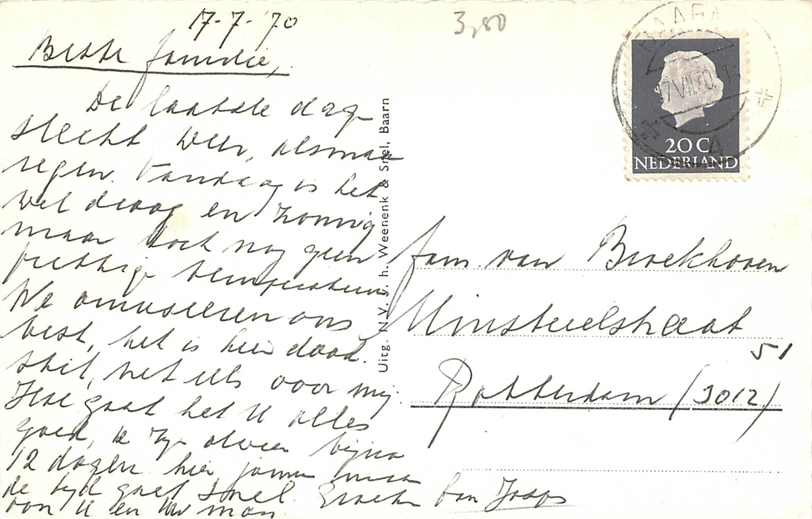 17-7-'70
3,80
Beste familie,
De laatste dag
slecht weer, alsmaar
regen. Vandaag is het
wel droog en zonnig
maar toch nog geen
prettige temperatuur
We amuseren ons
best, het is hier
stil, net iets voor mij.
Hoe gaat het U alles
goed, ik zijn alweer bijna
12 dagen hier jammer maar
de tijd gaat snel. Groeten van
aan U en Uw man
Uitg. N.V. v. h. Weenenk & Snel, Baarn
BAARN
17 VII.70
20 C
NEDERLAND
fam. van Broekhoven
Minstreelstraat
51
Rotterdam (3012)